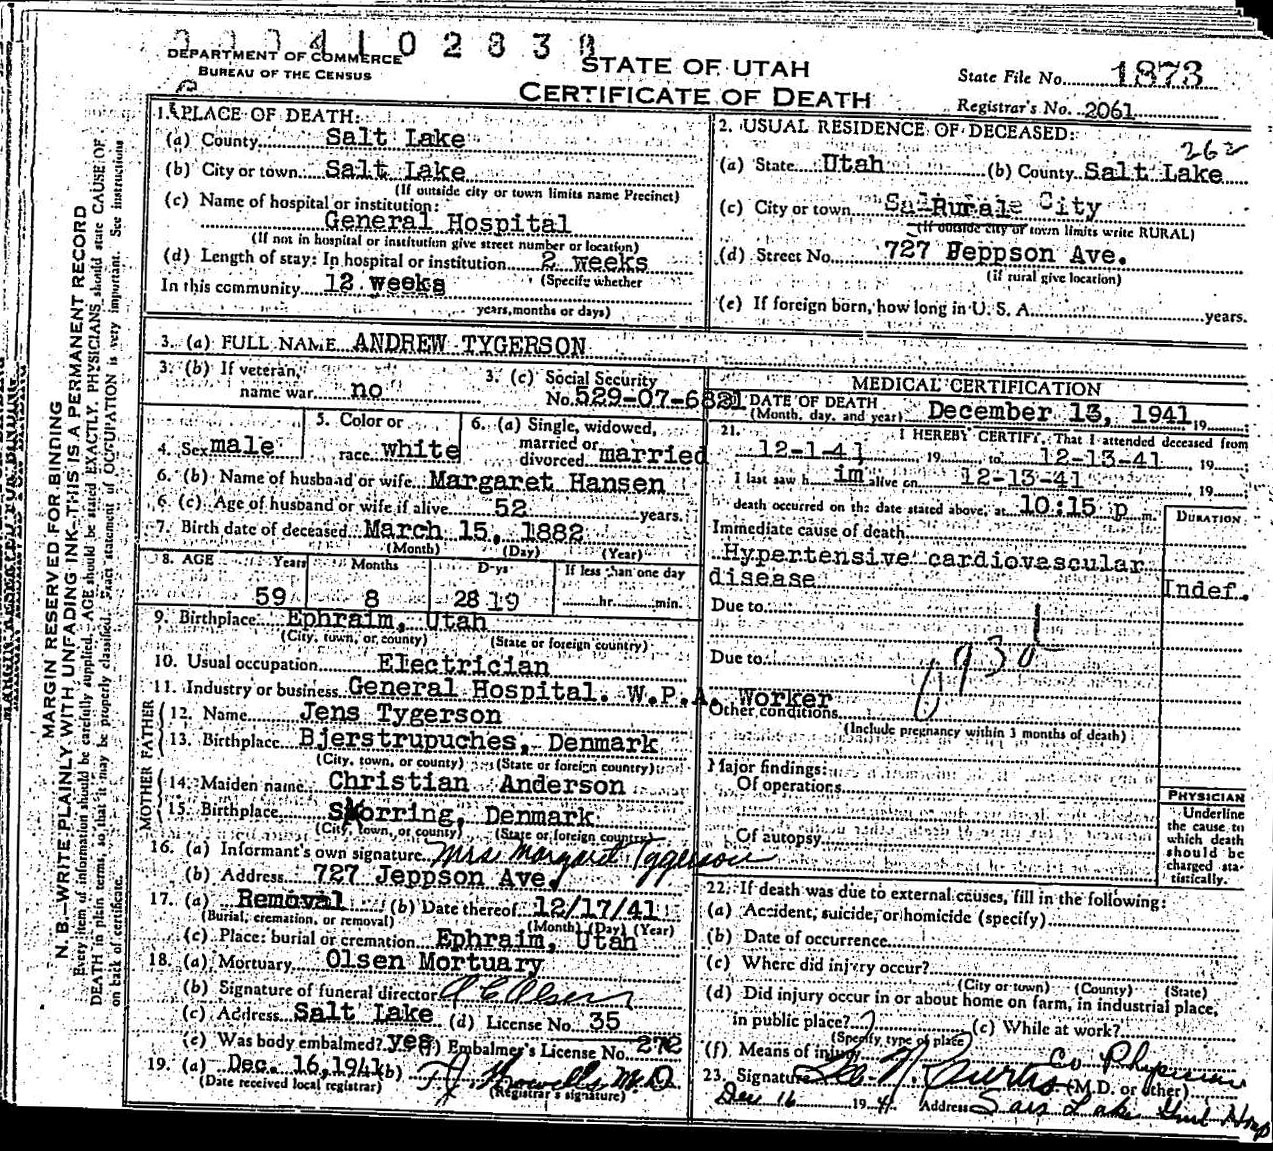 DEPARTMENT OF COMMERCE
BUREAU OF THE CENSUS
STATE OF UTAH
CERTIFICATE OF DEATH
State File No. 1873
Registrar's No. 2061
MARGIN RESERVED FOR BINDING
N. B.—WRITE PLAINLY WITH UNFADING INK—THIS IS A PERMANENT RECORD
Every item of information should be carefully supplied. AGE should be stated EXACTLY. PHYSICIANS should state CAUSE OF
DEATH in plain terms, so that it may be properly classified. Exact statement of OCCUPATION is very important. See instructions
on back of certificate.
1. PLACE OF DEATH:
(a) County Salt Lake
(b) City or town Salt Lake
(If outside city or town limits name Precinct)
(c) Name of hospital or institution:
General Hospital
(If not in hospital or institution give street number or location)
(d) Length of stay: In hospital or institution 2 weeks
(Specify whether
In this community 12 weeks
years, months or days)
2. USUAL RESIDENCE OF DECEASED:
262
(a) State Utah (b) County Salt Lake
(c) City or town Rural City
(If outside city or town limits write RURAL)
(d) Street No. 727 Jeppson Ave.
(if rural give location)
(e) If foreign born, how long in U. S. A. years.
3. (a) FULL NAME ANDREW TYGERSON
3. (b) If veteran, name war no
3. (c) Social Security No. 529-07-6821
4. Sex male
5. Color or race white
6. (a) Single, widowed, married or divorced married
6. (b) Name of husband or wife Margaret Hansen
6. (c) Age of husband or wife if alive 52 years.
7. Birth date of deceased March 15, 1882
(Month) (Day) (Year)
8. AGE Years Months Days If less than one day
59 8 28 19 hr. min.
9. Birthplace Ephraim, Utah
(City, town, or county) (State or foreign country)
10. Usual occupation Electrician
11. Industry or business General Hospital. W.P.A. Worker
FATHER
12. Name Jens Tygerson
13. Birthplace Bjerstrupuches, Denmark
(City, town, or county) (State or foreign country)
MOTHER
14. Maiden name Christian Anderson
15. Birthplace Skorring, Denmark
(City, town, or county) (State or foreign country)
16. (a) Informant's own signature Mrs Margaret Tygerson
(b) Address 727 Jeppson Ave.
17. (a) Removal (b) Date thereof 12/17/41
(Burial, cremation, or removal) (Month) (Day) (Year)
(c) Place: burial or cremation Ephraim, Utah
18. (a) Mortuary Olsen Mortuary
(b) Signature of funeral director A C Olsen
(c) Address Salt Lake (d) License No. 35
(e) Was body embalmed? yes (f) Embalmer's License No. 272
19. (a) Dec. 16, 1941 (b) Howells M.D
(Date received local registrar) (Registrar's signature)
MEDICAL CERTIFICATION
DATE OF DEATH
(Month, day, and year) December 13, 1941 19
21. I HEREBY CERTIFY, That I attended deceased from
12-1-41 19 to 12-13-41, 19
I last saw h im alive on 12-13-41, 19
death occurred on the date stated above, at 10:15 p m.
DURATION
Immediate cause of death
Hypertensive cardiovascular
disease
Indef.
Due to
Due to
930
Other conditions
(Include pregnancy within 3 months of death)
Major findings:
Of operations
Of autopsy
PHYSICIAN
Underline
the cause to
which death
should be
charged sta-
tistically.
22. If death was due to external causes, fill in the following:
(a) Accident, suicide, or homicide (specify)
(b) Date of occurrence
(c) Where did injury occur?
(City or town) (County) (State)
(d) Did injury occur in or about home on farm, in industrial place,
in public place? (e) While at work?
(Specify type of place)
(f) Means of injury
23. Signature Curtis Co Physician
(M.D. or other)
Dec 16 1941 Address Salt Lake Genl Hosp